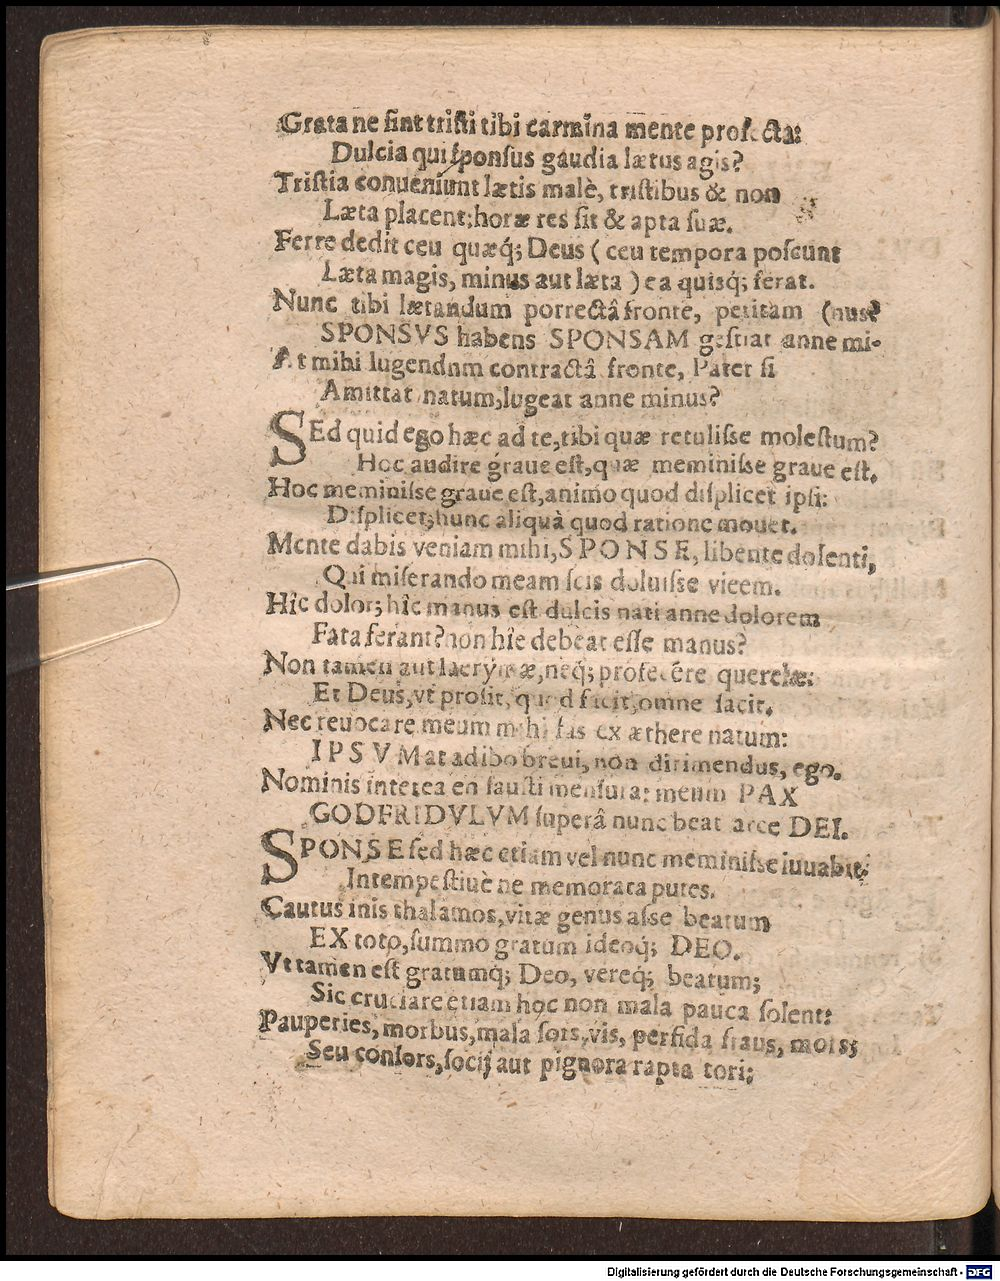 Grata ne sint tristi tibi carmina mente profecta:
Dulcia qui sponsus gaudia lætus agis?
Tristia conueniunt lætis malè, tristibus & non
Læta placent; horæ res sit & apta suæ.
Ferre dedit ceu quæq́; Deus ( ceu tempora poscunt
Læta magis, minus aut læta ) ea quisq́; ferat.
Nunc tibi lætandum porrectâ fronte, petitam (nus?
SPONSVS habens SPONSAM gestiat anne mi-
At mihi lugendum contractâ fronte, Pater si
Amittat natum, lugeat anne minus?
SEd quid ego hæc ad te, tibi quæ retulisse molestum?
Hoc audire graue est, quæ meminisse graue est.
Hoc meminisse graue est, animo quod displicet ipsi:
Displicet; hunc aliquà quod ratione mouet.
Mente dabis veniam mihi, SPONSE, libente dolenti,
Qui miserando meam scis doluisse vicem.
Hîc dolor; hîc manus est dulcis nati anne dolorem
Fata ferant? non hîc debeat esse manus?
Non tamen aut lacrymæ, neq́; profecére querelæ:
Et Deus, vt prosit, quod facit, omne facit.
Nec reuocare meum mihi fas ex æthere natum:
IPSVM at adibo breui, non dirimendus, ego.
Nominis interea en fausti mensura: meum PAX
GODFRIDVLVM superâ nunc beat arce DEI.
SPONSE sed hæc etiam vel nunc meminisse iuuabit;
Intempestiuè ne memorata putes.
Cautus inis thalamos, vitæ genus asse beatum
EX toto, summo gratum ideoq́; DEO.
Vt tamen est gratumq́; Deo, vereq́; beatum;
Sic cruciare etiam hoc non mala pauca solent:
Pauperies, morbus, mala sors, vis, perfida fraus, mors;
Seu consors, socij aut pignora rapta tori;
Digitalisierung gefördert durch die Deutsche Forschungsgemeinschaft - DFG